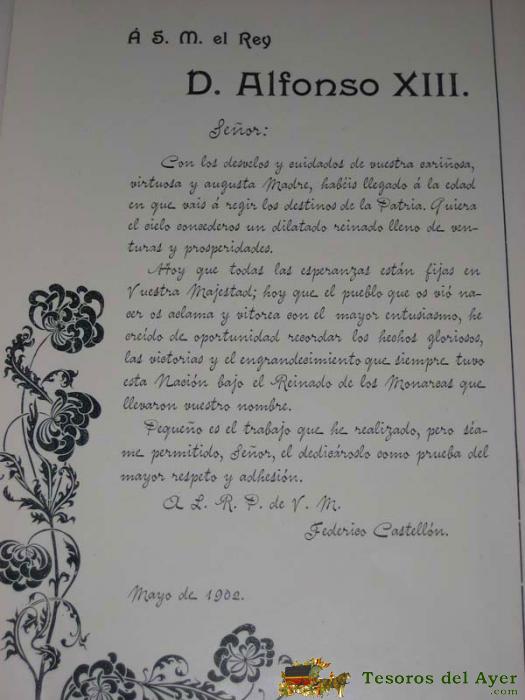 Á S. M. el Rey
D. Alfonso XIII.
Señor:
Con los desvelos y cuidados de vuestra cariñosa,
virtuosa y augusta Madre, habéis llegado á la edad
en que vais á regir los destinos de la Patria. Quiera
el cielo concederos un dilatado reinado lleno de ven-
turas y prosperidades.
Hoy que todas las esperanzas están fijas en
Vuestra Majestad; hoy que el pueblo que os vió na-
cer os aclama y vitorea con el mayor entusiasmo, he
creído de oportunidad recordar los hechos gloriosos,
las victorias y el engrandecimiento que siempre tuvo
esta Nación bajo el Reinado de los Monarcas que
llevaron vuestro nombre.
Pequeño es el trabajo que he realizado, pero séa-
me permitido, Señor, el dedicároslo como prueba del
mayor respeto y adhesión.
A L. R. P. de V. M.
Federico Castellón.
Mayo de 1902.
Tesoros del Ayer
.com